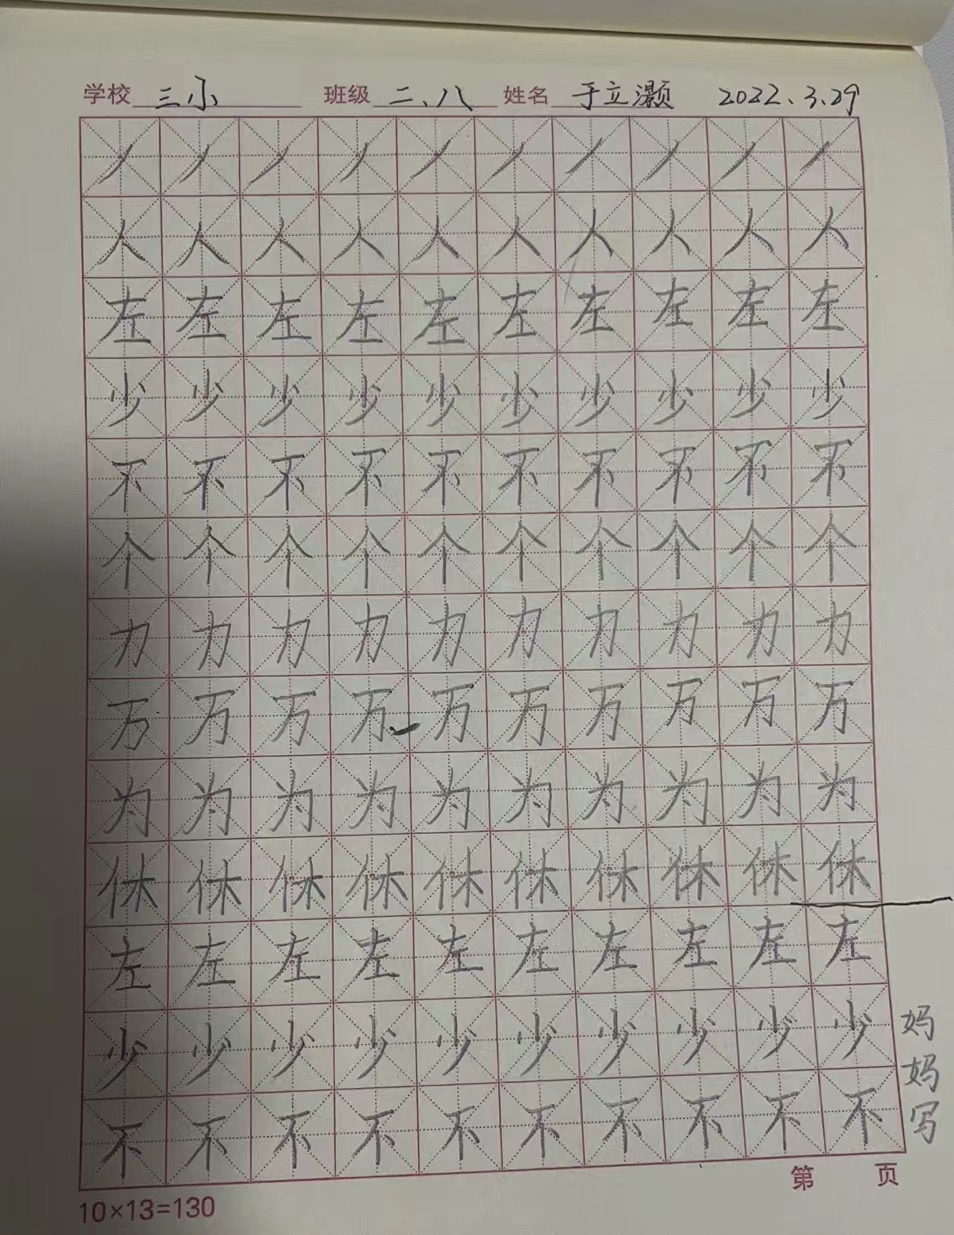 学校 三小 班级 二、八 姓名 于立灏 2022.3.29
丿丿丿丿丿丿丿丿丿丿
人人人人人人人人人人
左左左左左左左左左左
少少少少少少少少少少
不不不不不不不不不不
个个个个个个个个个个
力力力力力力力力力力
万万万万万万万万万万
为为为为为为为为为为
休休休休休休休休休休
左左左左左左左左左左
少少少少少少少少少少
不不不不不不不不不不
妈妈写
第 页
10×13=130